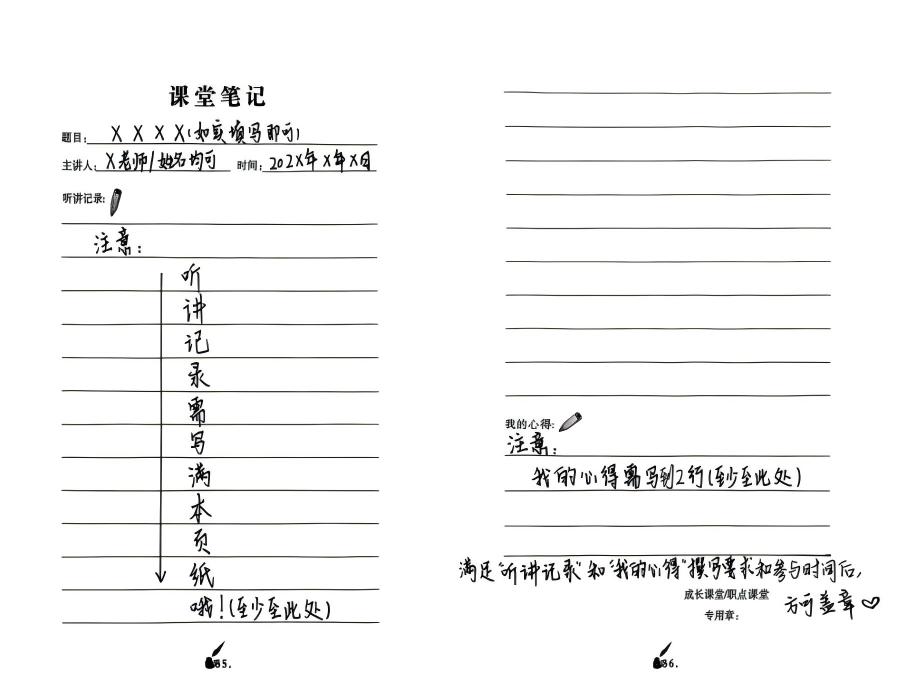 课堂笔记
题目：X X X X（如实填写即可）
主讲人：X老师/姓名均可 时间：202X年X月X日
听讲记录：
注意：
听
讲
记
录
需
写
满
本
页
纸
哦！（至少至此处）
35.
我的心得：
注意：
我的心得需写到2行（至少至此处）
满足“听讲记录”和“我的心得”撰写要求和参与时间后，
方可盖章♡
成长课堂/职点课堂
专用章：
36.